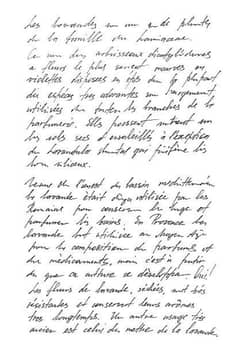 Les lavandes sont un genre de plantes
de la famille des Lamiaceae.
Ce sont des arbrisseaux dicotylédones
à fleurs le plus souvent mauves ou
violettes disposées en épis dont la plupart
des espèces, très odorantes sont largement
utilisées dans toutes les branches de la
parfumerie. Elles poussent surtout sur
des sols secs et ensoleillés à l'exception
de Lavandula stoechas qui préfère les
lieux siliceux.
Venue de l'ouest du bassin méditerranéen
la lavande était déjà utilisée par les
Romains pour conserver le linge et
parfumer les bains. En Provence la
lavande est utilisée au Moyen âge
pour la composition de parfums et
de médicaments, mais c'est à partir
que sa culture se développe
Les fleurs de lavande, séchées, sont très
résistantes et conservent leurs arômes
très longtemps. Un autre usage très
ancien est celui du de la lavande.